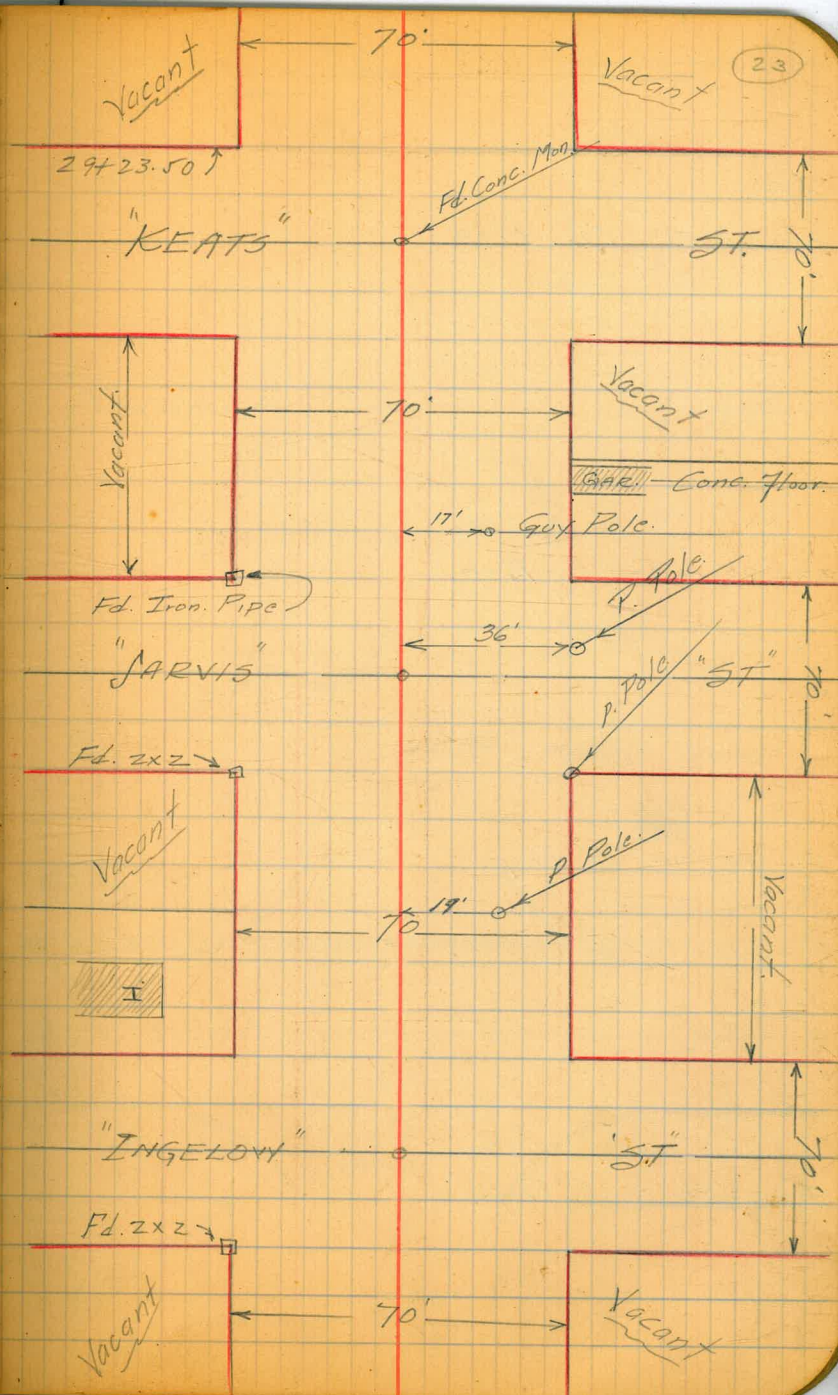 70'
Vacant
Vacant
23
29+23.50
Fd. Conc. Mon.
"KEATS"
ST.
70'
Vacant
70'
Vacant
GAR. Conc. Floor.
17' Guy Pole.
P. Pole.
Fd. Iron. Pipe
36'
"JARVIS"
P. Pole
"ST"
70'
Fd. 2x2
Vacant
P. Pole.
19'
70
Vacant.
I
"INGELOW"
"S.T"
70'
Fd. 2x2
70'
Vacant
Vacant